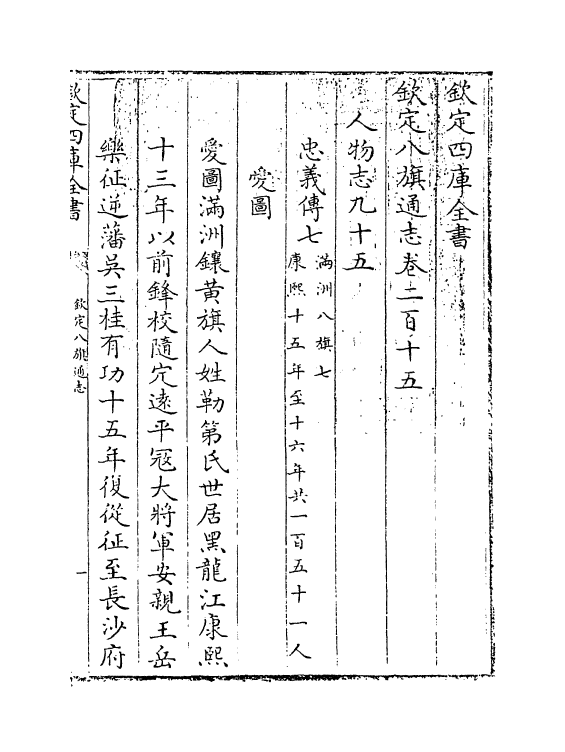 欽定四庫全書
欽定八旗通志卷二百十五
人物志九十五
忠義傳七
滿洲八旗七
康熙十五年至十六年共一百五十一人
愛圖
愛圖滿洲鑲黃旗人姓勒第氏世居黑龍江康熙
十三年以前鋒校隨定遠平冦大將軍安親王岳
樂征逆藩吳三桂有功十五年復從征至長沙府
欽定四庫全書
欽定八旗通志
一